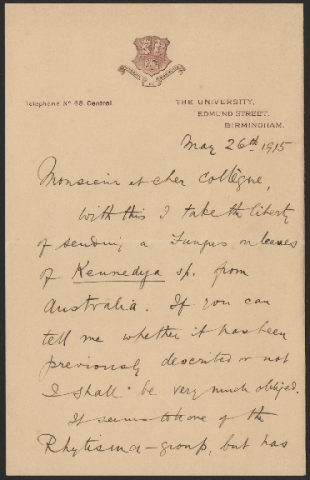 Telephone Nº 68. Central.
THE UNIVERSITY,
EDMUND STREET,
BIRMINGHAM.
May 26th, 1915
Monsieur et cher collègue,
With this I take the liberty
of sending a Fungus on leaves
of Kennedya sp. from
Australia. If you can
tell me whether it has been
previously described or not
I shall be very much obliged.
It seems to be one of the
Rhytisma-group, but has